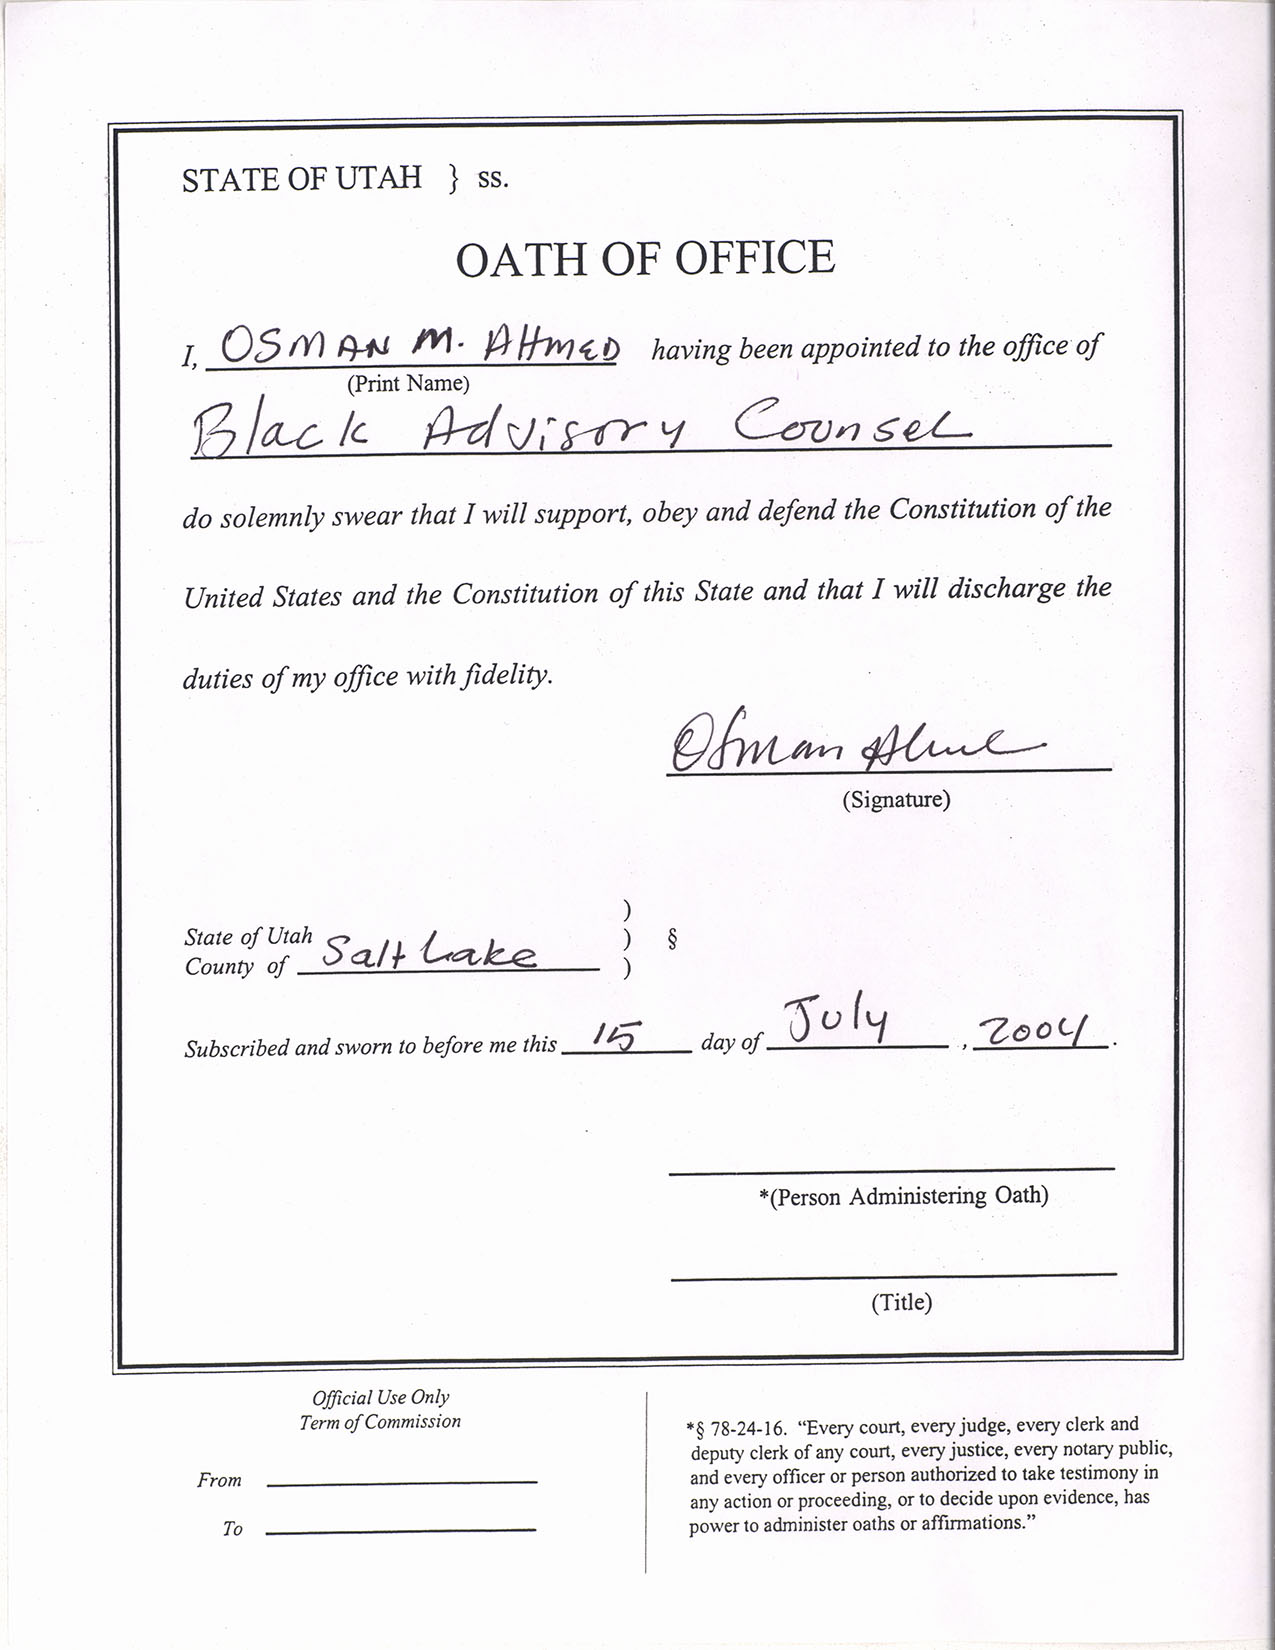 STATE OF UTAH } ss.
OATH OF OFFICE
I, OSMAN M. AHMED having been appointed to the office of
(Print Name)
Black Advisory Counsel
do solemnly swear that I will support, obey and defend the Constitution of the
United States and the Constitution of this State and that I will discharge the
duties of my office with fidelity.
Osman Ahmed
(Signature)
)
State of Utah ) §
County of Salt Lake )
Subscribed and sworn to before me this 15 day of July, 2004.
*(Person Administering Oath)
(Title)
Official Use Only
Term of Commission
From
To
*§ 78-24-16. “Every court, every judge, every clerk and
deputy clerk of any court, every justice, every notary public,
and every officer or person authorized to take testimony in
any action or proceeding, or to decide upon evidence, has
power to administer oaths or affirmations.”